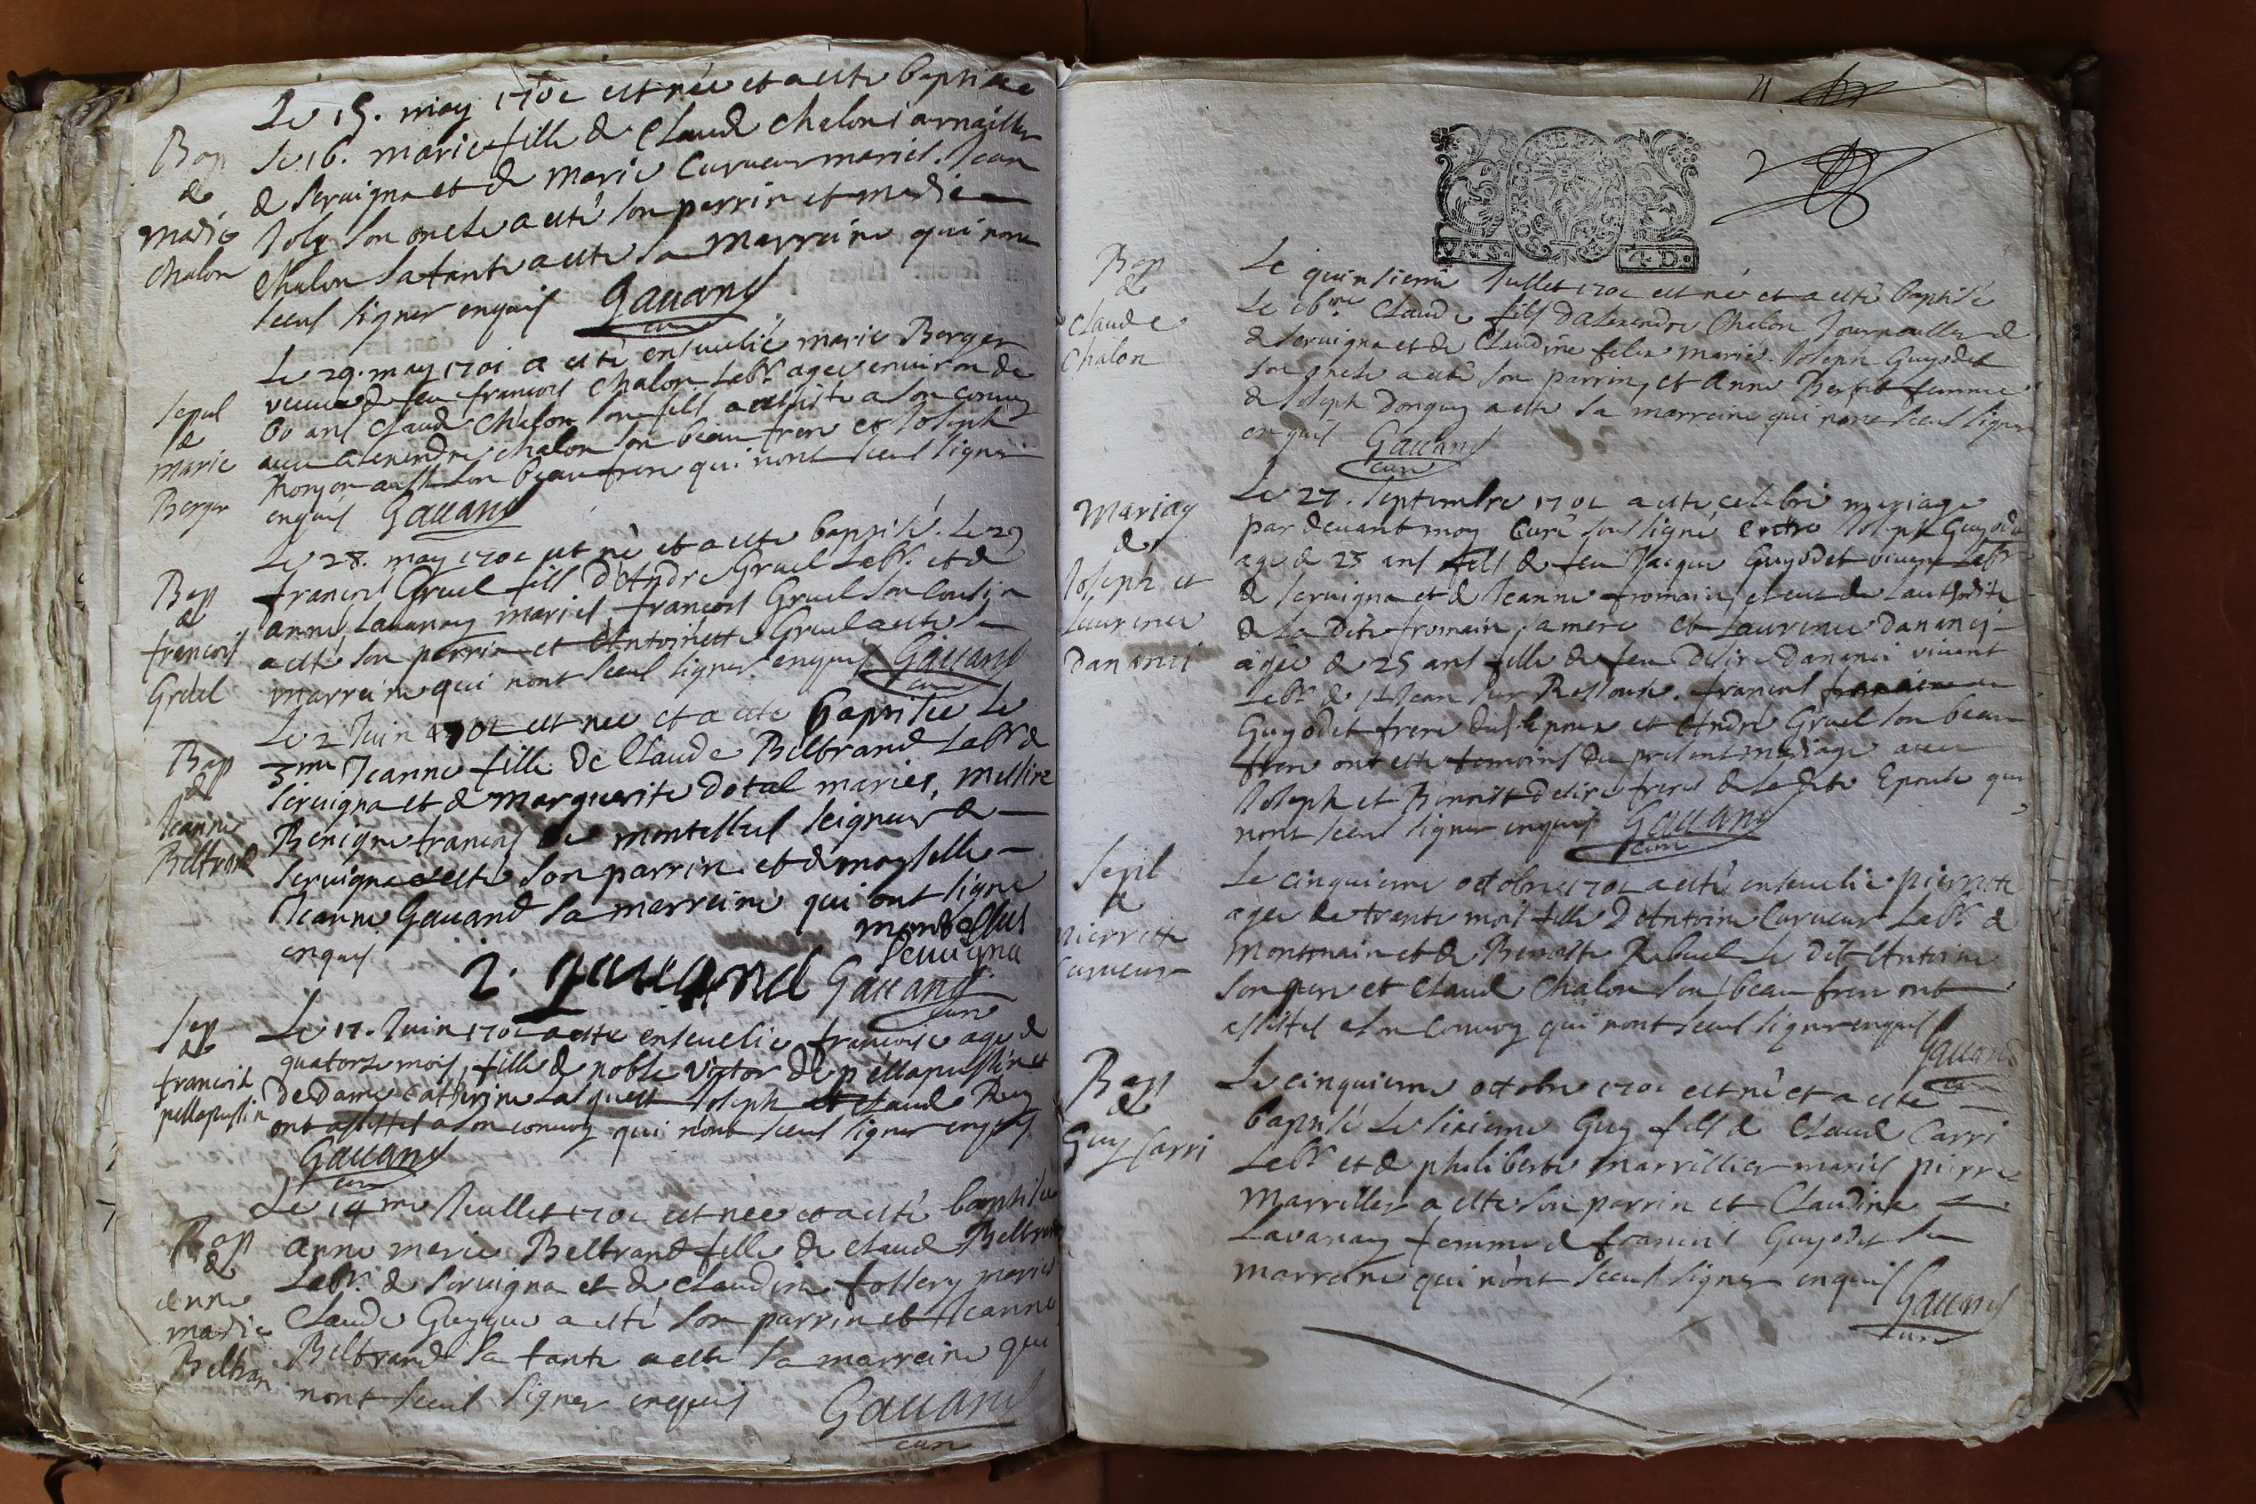 Bap
de
marie
chalon
Le 15. may 1701 est née et a esté baptisée
le 16. marie fille de Claude chalon
de servigna et de marie Curveur mariés. Jean
Joly son oncle a esté son parrin et marie
chalon sa tante a esté sa marreine qui nont
sceus signer enquis Gauand
curé
sepul
de
marie
Berger
Le 29. may 1701 a esté ensevelie marie Berger
veuve de feu francois chalon Labr. agee environ de
60 ans claude chalon son fils a assisté a son convoy
avec alexendre chalon son beau frere et Joseph
aussi son beau frere qui nont sceus signer
enquis Gauand
Bap
de
francois
Gruel
Le 28. may 1701 est né et a esté baptisé. Le 29
francois Gruel fils d'Andre Gruel Labr. et de
anne Lavanay mariés francois Gruel son cousin
a esté son parrin et Antoinette Gruel a esté sa
marreine qui nont sceus signer enquis Gauand
curé
Bap
de
Jeanne
Beltrand
Le 2 Juin 1701 est née et a esté baptisée le
3me Jeanne fille de Claude Beltrand Labr. de
servigna et de marguerite dotal mariés, messire
Benigne francois de montessus seigneur de
servigna a esté son parrin et demoyselle
Jeanne Gauand sa marreine qui ont signé
enquis montessus
servigna
J. gauand Gauand
curé
sep
de
francoise
pellapussin
Le 17. Juin 1701 a esté ensevelie francoise agee de
quatorse mois, fille de noble victor de pellapussin et
de Dame catherine Joseph et claude Rey
ont assistés a son convoy qui nont sceus signer enquis
Gauand
curé
Bap
de
anne
marie
Beltran
Le 14me Juillet 1701 est née et a esté baptisée
anne marie Beltrand fille de claude Beltrand
Labr. de servigna et de claudine mariés
Claude a esté son parrin et Jeanne
Beltrand sa tante a esté sa marreine qui
nont sceus signer enquis Gauand
curé
2
VN.S. 4.D.
Bap
de
claude
chalon
Le quinsieme Jullet 1701 est né et a esté baptisé
Le 16me Claude fils d'alexendre Chalon
de servigna et de Claudine mariés. Joseph Guyodet
son oncle a esté son parrin, et anne femme
de Joseph Donguy a esté sa marreine qui nont sceus signer
enquis Gauand
curé
Mariag
de
Joseph et
Laurence
Dananci
Le 27. septembre 1701 a esté celebré mariage
par devant moy Curé soussigné entre Joseph Guyodet
agé de 23 ans fils de feu Jacque Guyodet vivant Labr.
de servigna et de Jeanne fromain, et de Lauthorité
de la dite fromain sa mere et Laurence Dananci
agée de 25 ans fille de feu Desire Dananci vivant
Labr. de st Jean sur Ressouse. francois
Guyodet frere dud. Epoux et André Gruel son beau
frere ont esté temoins du present mariage avec
Joseph et Benoist desire freres de la dite Epouse qui
nont sceus signer enquis Gauand
curé
Sepul
de
pierrette
curveur
Le cinquieme octobre 1701 a esté ensevelie pierrette
agee de trente mois fille d'Antoine Curveur Labr. de
Montenain et de Benoiste Rabuel Le dit Antoine
son pere et Claude Chalon son beau frere ont
assistés a son convoy qui nont sceus signer enquis
Gauand
curé
Bap
de
Guy Carri
Le cinquieme octobre 1701 est né et a esté
baptisé Le sixieme Guy fils de Claude Carri
Labr. et de philiberte marvillier mariés pierre
Marvillier a esté son parrin et Claudine
Lavanay femme de francois Guyodet sa
marreine qui nont sceus signer enquis
Gauand
curé